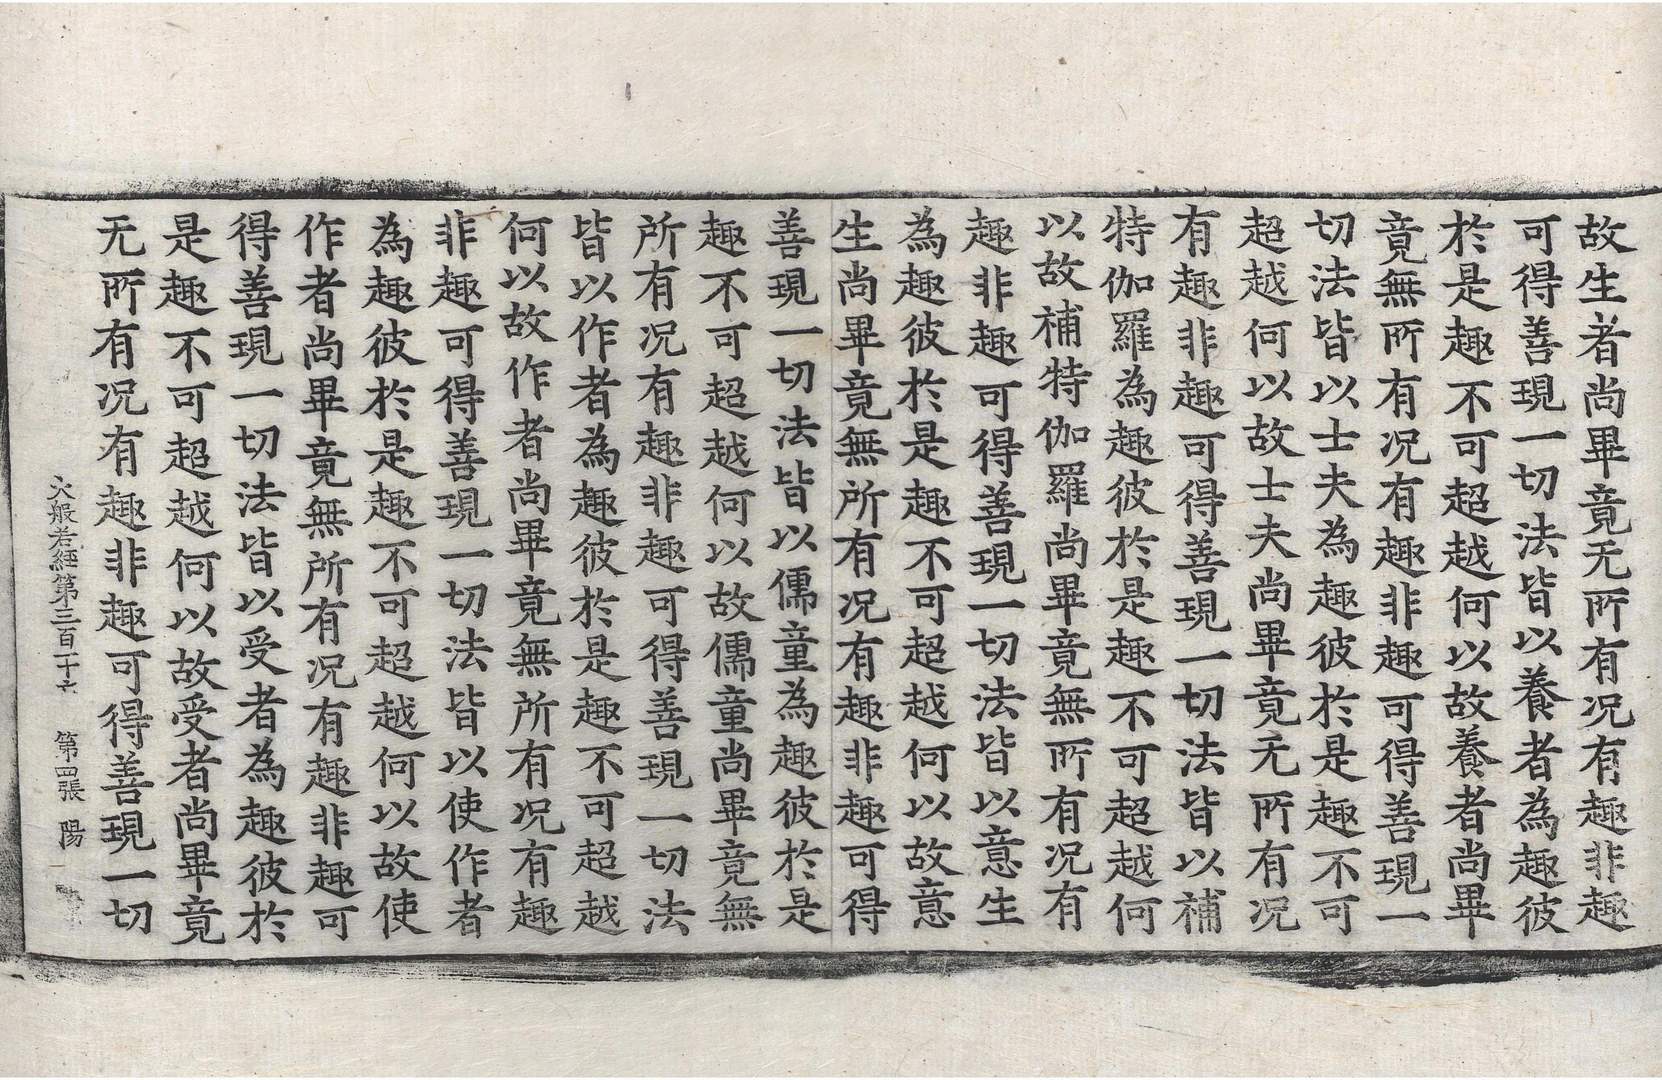 故生者尚畢竟无所有况有趣非趣
可得善現一切法皆以養者為趣彼
於是趣不可超越何以故養者尚畢
竟無所有况有趣非趣可得善現一
切法皆以士夫為趣彼於是趣不可
超越何以故士夫尚畢竟无所有况
有趣非趣可得善現一切法皆以補
特伽羅為趣彼於是趣不可超越何
以故補特伽羅尚畢竟無所有况有
趣非趣可得善現一切法皆以意生
為趣彼於是趣不可超越何以故意
生尚畢竟無所有况有趣非趣可得
善現一切法皆以儒童為趣彼於是
趣不可超越何以故儒童尚畢竟無
所有况有趣非趣可得善現一切法
皆以作者為趣彼於是趣不可超越
何以故作者尚畢竟無所有况有趣
非趣可得善現一切法皆以使作者
為趣彼於是趣不可超越何以故使
作者尚畢竟無所有况有趣非趣可
得善現一切法皆以受者為趣彼於
是趣不可超越何以故受者尚畢竟
无所有况有趣非趣可得善現一切
大般若經第三百二十六 第四張 陽